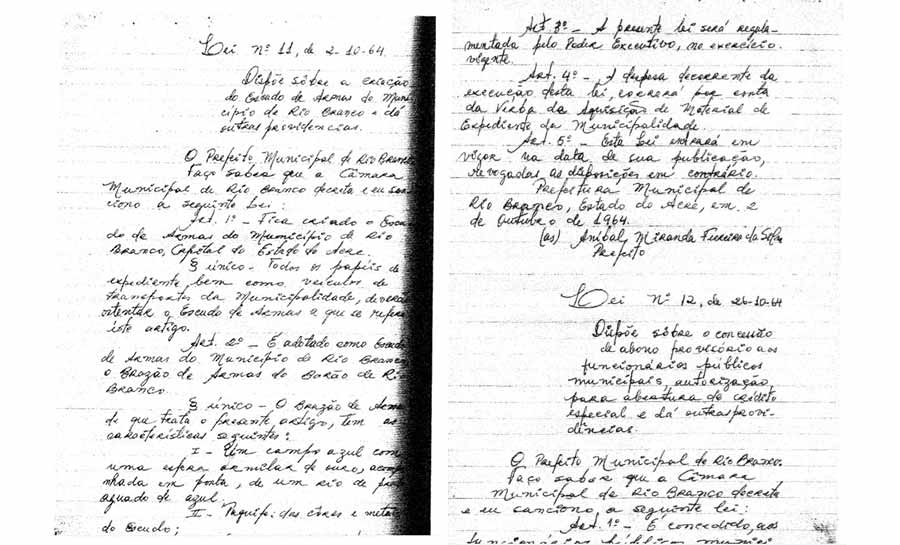 Lei Nº 11, de 2-10-64.
Dispõe sôbre a criação
do Escudo de Armas do Muni
cípio de Rio Branco e dá
outras providencias.
O Prefeito Municipal de Rio Branco
Faço saber que a Câmara
Municipal de Rio Branco decreta e eu san
ciono a seguinte Lei:
Art. 1º - Fica criado o Escu
do de Armas do Município de Rio
Branco, Capital do Estado do Acre.
§ único - Todos os papéis de
expediente bem como veículos de
transportes da Municipalidade, deverá
ostentar o Escudo de Armas a que se refere
êste artigo.
Art. 2º - É adotado como Escudo
de Armas do Município de Rio Branco
o Brazão de Armas do Barão de Ri
Branco.
§ único - O Brazão de Arma
de que trata o presente artigo, tem as
características seguintes:
I - Um campo azul com
uma esfera armilar de ouro, acom
nhada em ponta, de um rio de pra
aguado de azul.
II - Paquife: das côres e metal
do escudo;
Art. 3º - A presente lei será regula-
mentada pelo Poder Executivo, no exercício
vigente.
Art. 4º - A despesa decorrente da
execução desta lei, correrá por conta
da Verba da Aquisição de Material de
Expediente da Municipalidade.
Art. 5º - Esta Lei entrará em
vigor na data de sua publicação,
revogadas as disposições em contrário.
Prefeitura Municipal de
Rio Branco, Estado do Acre, em 2
de Outubro de 1964.
(as) Aníbal Miranda Ferreira da Silva
Prefeito
Lei Nº 12, de 26-10-64
Dispõe sôbre o concessão
de abono provisório aos
funcionários públicos
municipais, autorização,
para abertura de crédito
especial e dá outras provi-
dências.
O Prefeito Municipal de Rio Branco.
Faço saber que a Câmara
Municipal de Rio Branco decreta
e eu sanciono, a seguinte lei:
Art. 1º - É concedido, aos
funcionários públicos munici